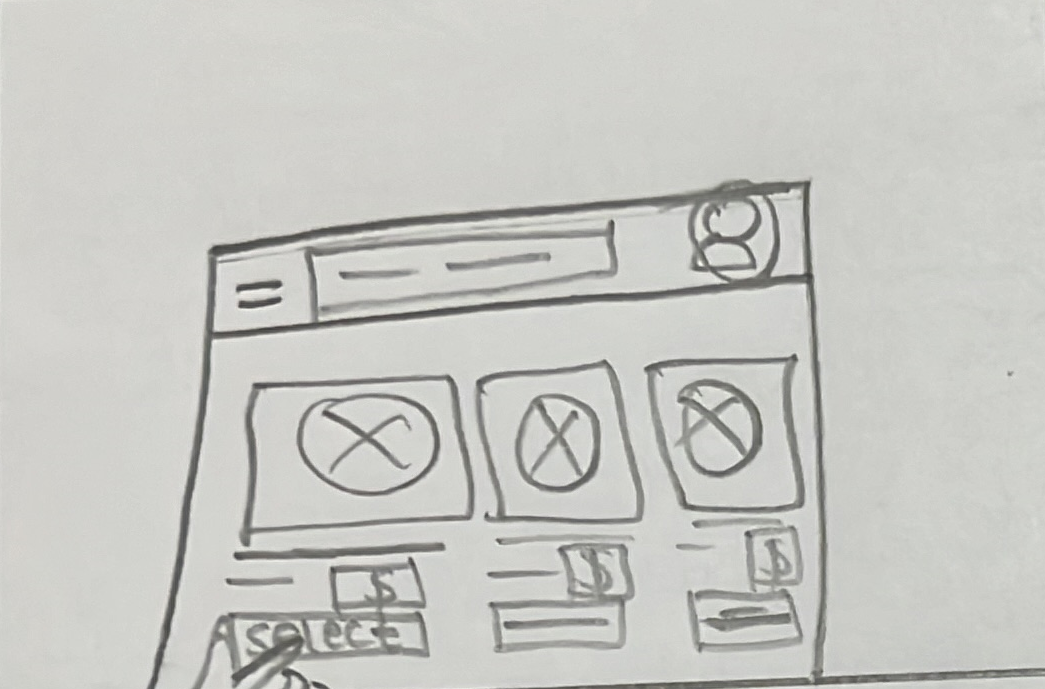 $ $ $
select